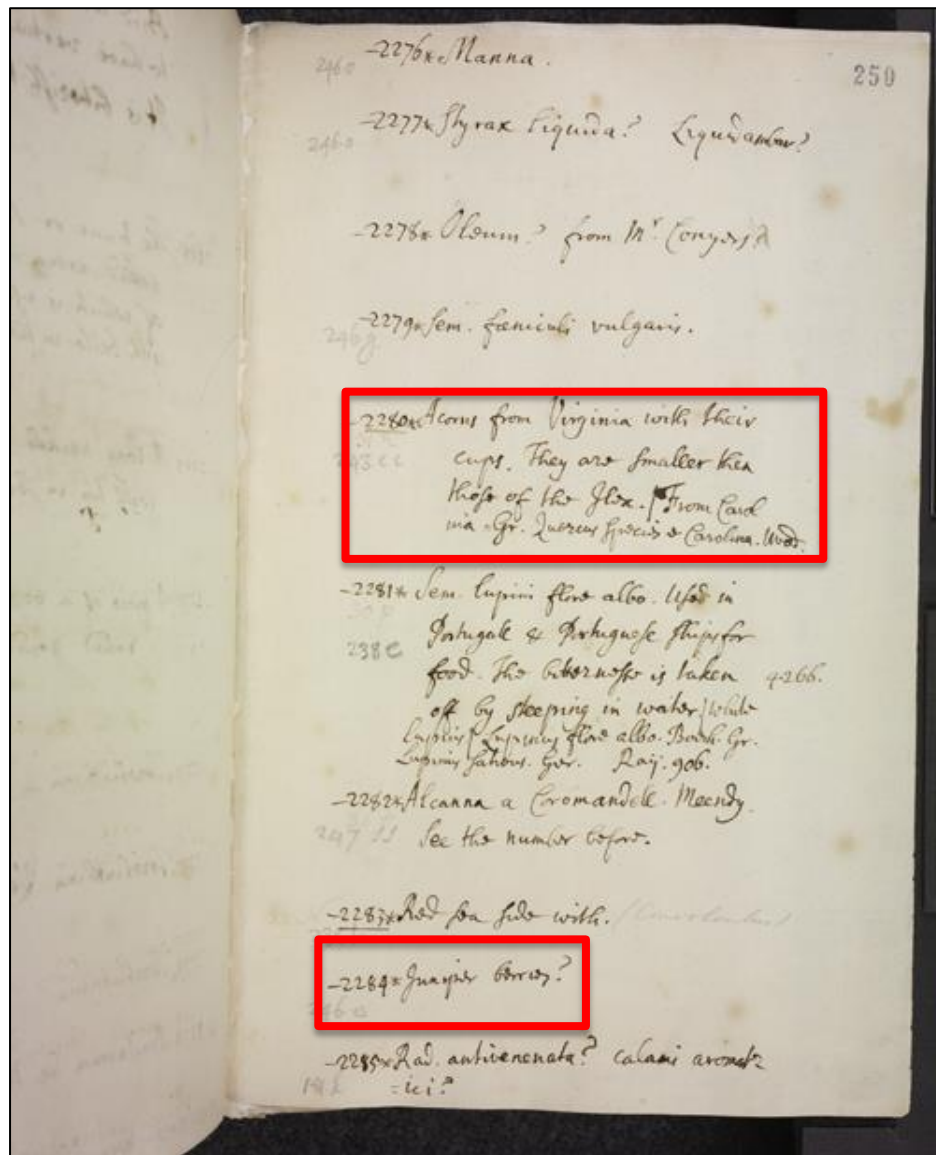 250
-2276* Manna.
246 o
-2277* Styrax liquida? Liquidambar?
246 o
-2278* Oleum? from Mr. Conyers?
-2279* Sem. fæniculi vulgaris.
246 g
-2280* Acorns from Virginia with their
cups. They are smaller then
those of the Ilex. [From Caroli
nia. Gr. Quercus species e Carolina.
-2281* Sem. lupini flore albo. Used in
Portugall & Portuguese ships for
238 C
food. The bitternesse is taken 4266.
off by steeping in water] white
lupins [Lupinus flore albo. Gr.
Lupinus sativus. Ger. Raij. 906.
-2282* Alcanna a Coromandell. Meendy.
247 See the number before.
-2283* Red sea side with. (Convolvulus)
-2284* Juniper berries?
246
-2285* Rad. antivenenata? calami aromat
=ici?